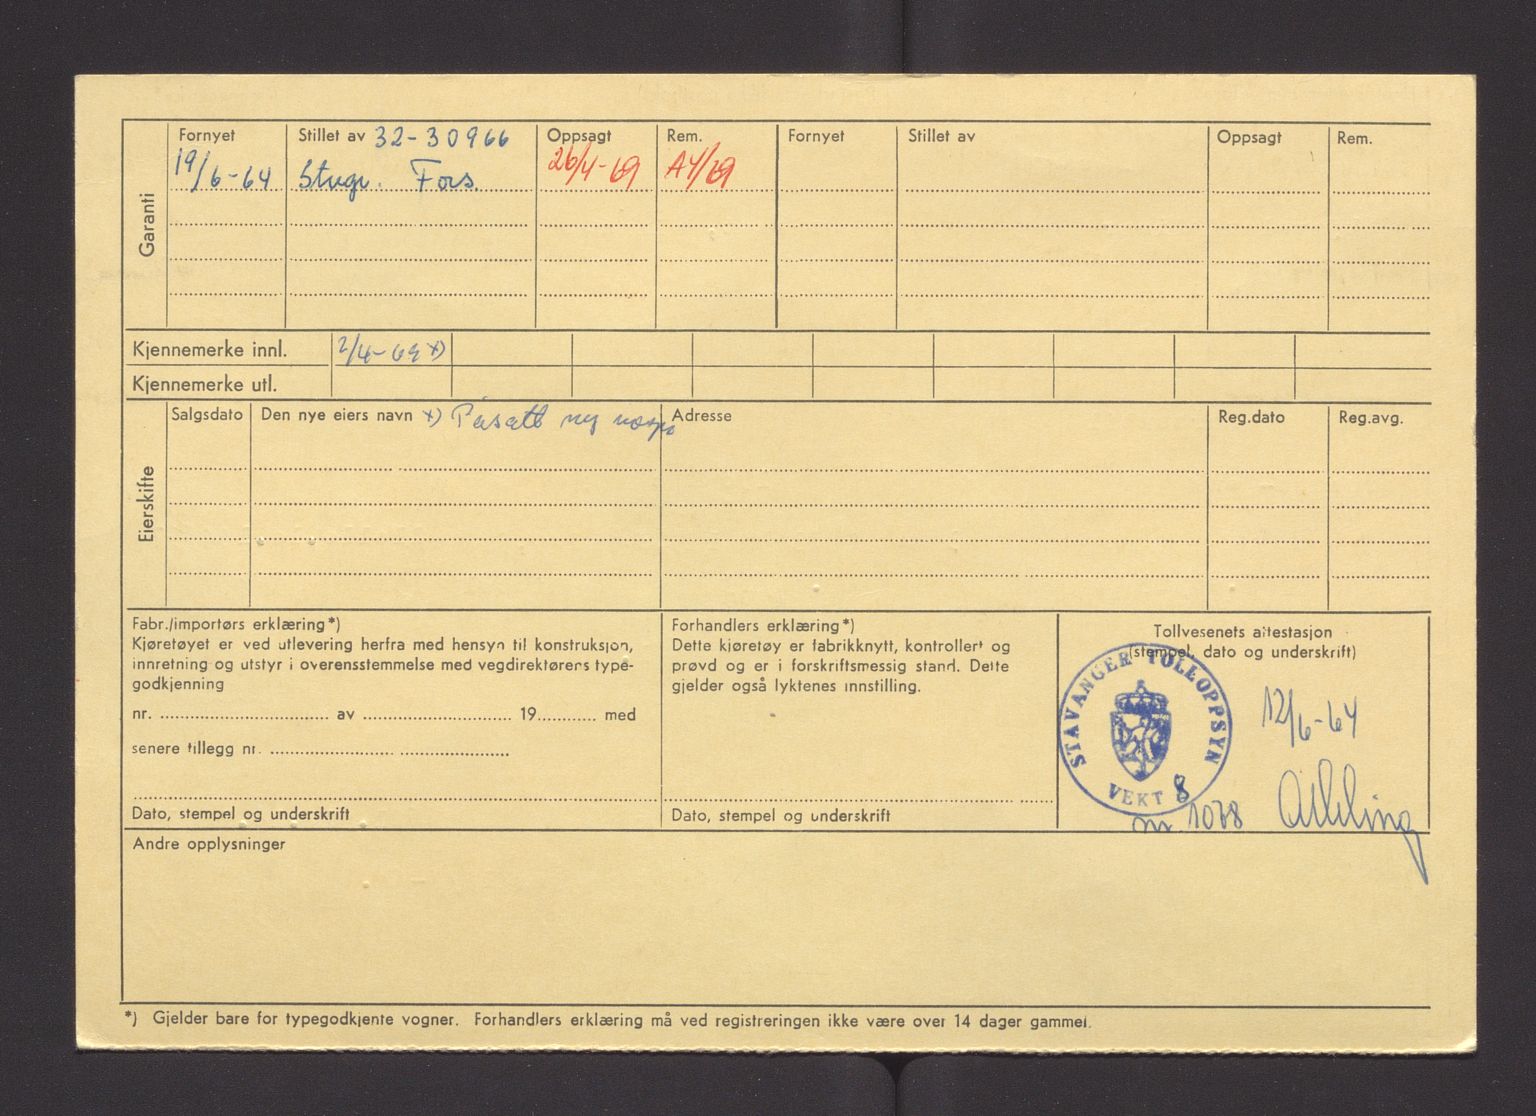 Garanti
Fornyet Stillet av 32-30966 Oppsagt Rem. Fornyet Stillet av Oppsagt Rem.
19/6-64 Stvgr. Fors. 26/4-69 A4/69
Kjennemerke innl. 2/4-69 x)
Kjennemerke utl.
Eierskifte
Salgsdato Den nye eiers navn x) Påsatt ny Adresse Reg.dato Reg.avg.
Fabr./importørs erklæring*)
Kjøretøyet er ved utlevering herfra med hensyn til konstruksjon,
innretning og utstyr i overensstemmelse med vegdirektørens type-
godkjenning
nr. av 19 med
senere tillegg nr.
Dato, stempel og underskrift
Forhandlers erklæring*)
Dette kjøretøy er fabrikknytt, kontrollert og
prøvd og er i forskriftsmessig stand. Dette
gjelder også lyktenes innstilling.
Dato, stempel og underskrift
Tollvesenets attestasjon
(stempel, dato og underskrift)
STAVANGER TOLLOPPSYN
VEKT 8
12/6-64
nr 1078
Andre opplysninger
*) Gjelder bare for typegodkjente vogner. Forhandlers erklæring må ved registreringen ikke være over 14 dager gammel.